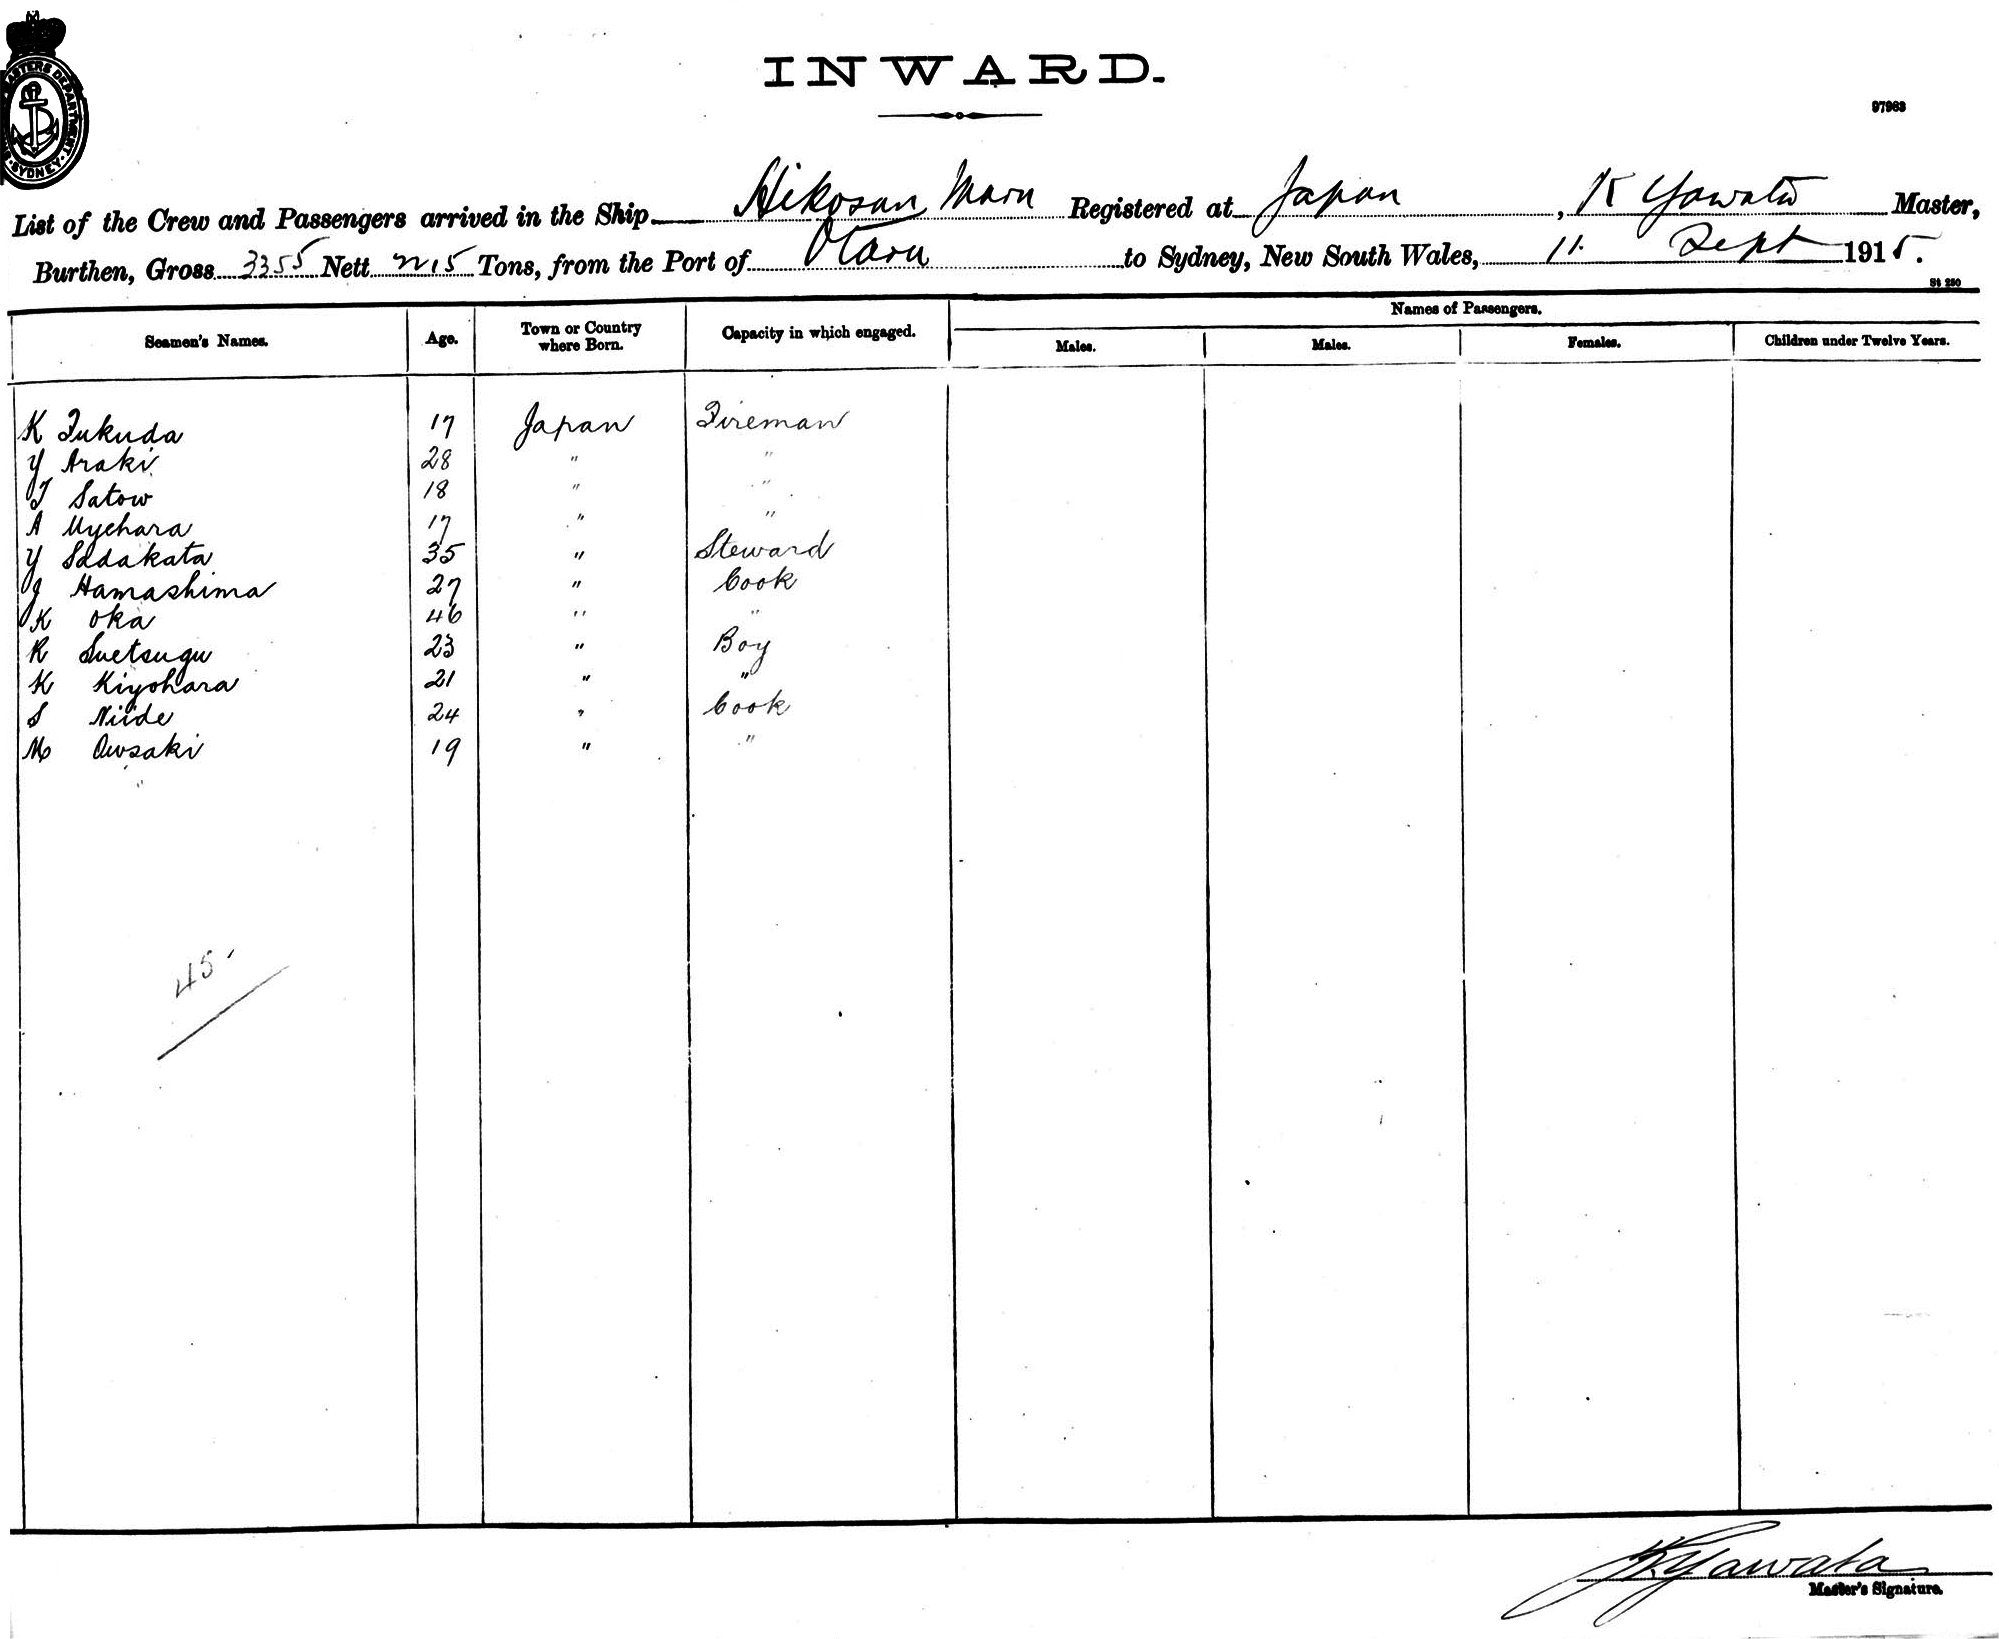 INWARD.
97963
List of the Crew and Passengers arrived in the Ship Hikosan Maru Registered at Japan, K Yawata Master,
Burthen, Gross 3355 Nett 2215 Tons, from the Port of Otaru to Sydney, New South Wales, 11 Sept 1915.
St 250
Names of Passengers.
Seamen's Names. Age. Town or Country where Born. Capacity in which engaged. Males. Males. Females. Children under Twelve Years.
K Fukuda 17 Japan Fireman
Y Araki 28 " "
T Satow 18 " "
A Uyehara 17 " "
Y Sadakata 35 " Steward
J Hamashima 27 " Cook
K Oka 46 " "
R Suetsugu 23 " Boy
K Kiyohara 21 " "
S Niide 24 " Cook
M Owsaki 19 " "
45
K Yawata
Master's Signature.